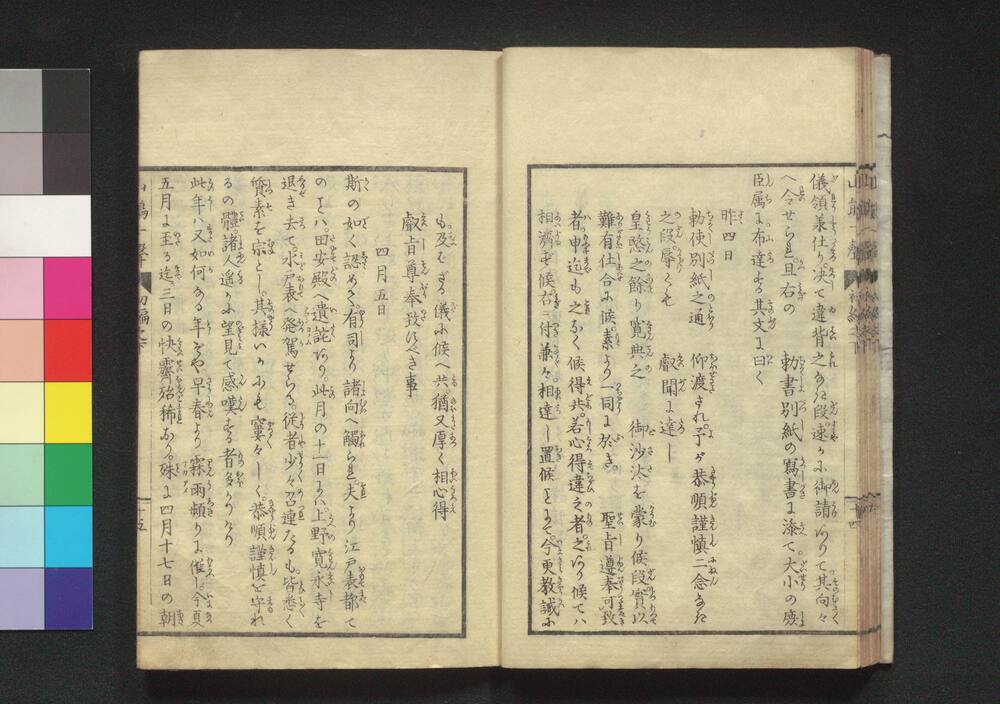 儀領承仕り决て違背之なき段速かに御請ありて其向々
へ令せられ且右の 勅書別紙の寫書に添て大小の癈
臣属に布達する其文に曰く
昨四日
勅使別紙之通 仰渡され予が恭順謹慎二念なき
之段辱くも 叡聞に達し
皇愍之餘り寛典之 御沙汰を蒙り候段實以
難有仕合に候素より一同に於も 聖旨遵奉可致
者申迄も之なく候得共若心得違之者之あり候ては
相濟ず候右に付兼々相達し置候ことにて今更教誡に
も及ばざる儀に候へ共猶又厚く相心得
叡旨尊奉致すべき事
四月五日
斯の如く認めさせ有司より諸向へ觸られ夫より江戸表都て
のことは田安殿へ遺託あり此月の十一日には上野寛永寺を
退き去て水戸表へ発駕せらる従者少々召連たるも皆悉く
質素を宗とし其様いかにも窶々しく恭順謹慎を守れ
るの體諸人遥かに望見て感嘆する者多かりけり
此年は又如何なる年ぞや早春より霖雨頻りに催し今夏
五月に至る迄三日の快霽殆稀なり殊に四月十七日の朝